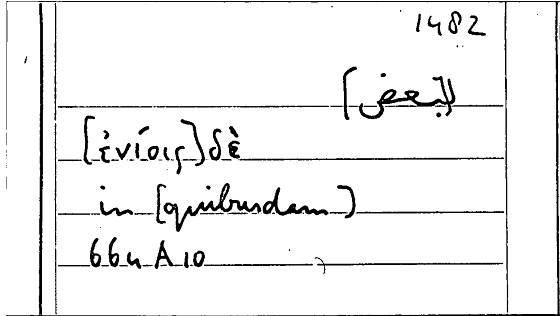 1482
لبعض]
[ἐνίοις] δὲ
in [quibusdam]
664 A 10